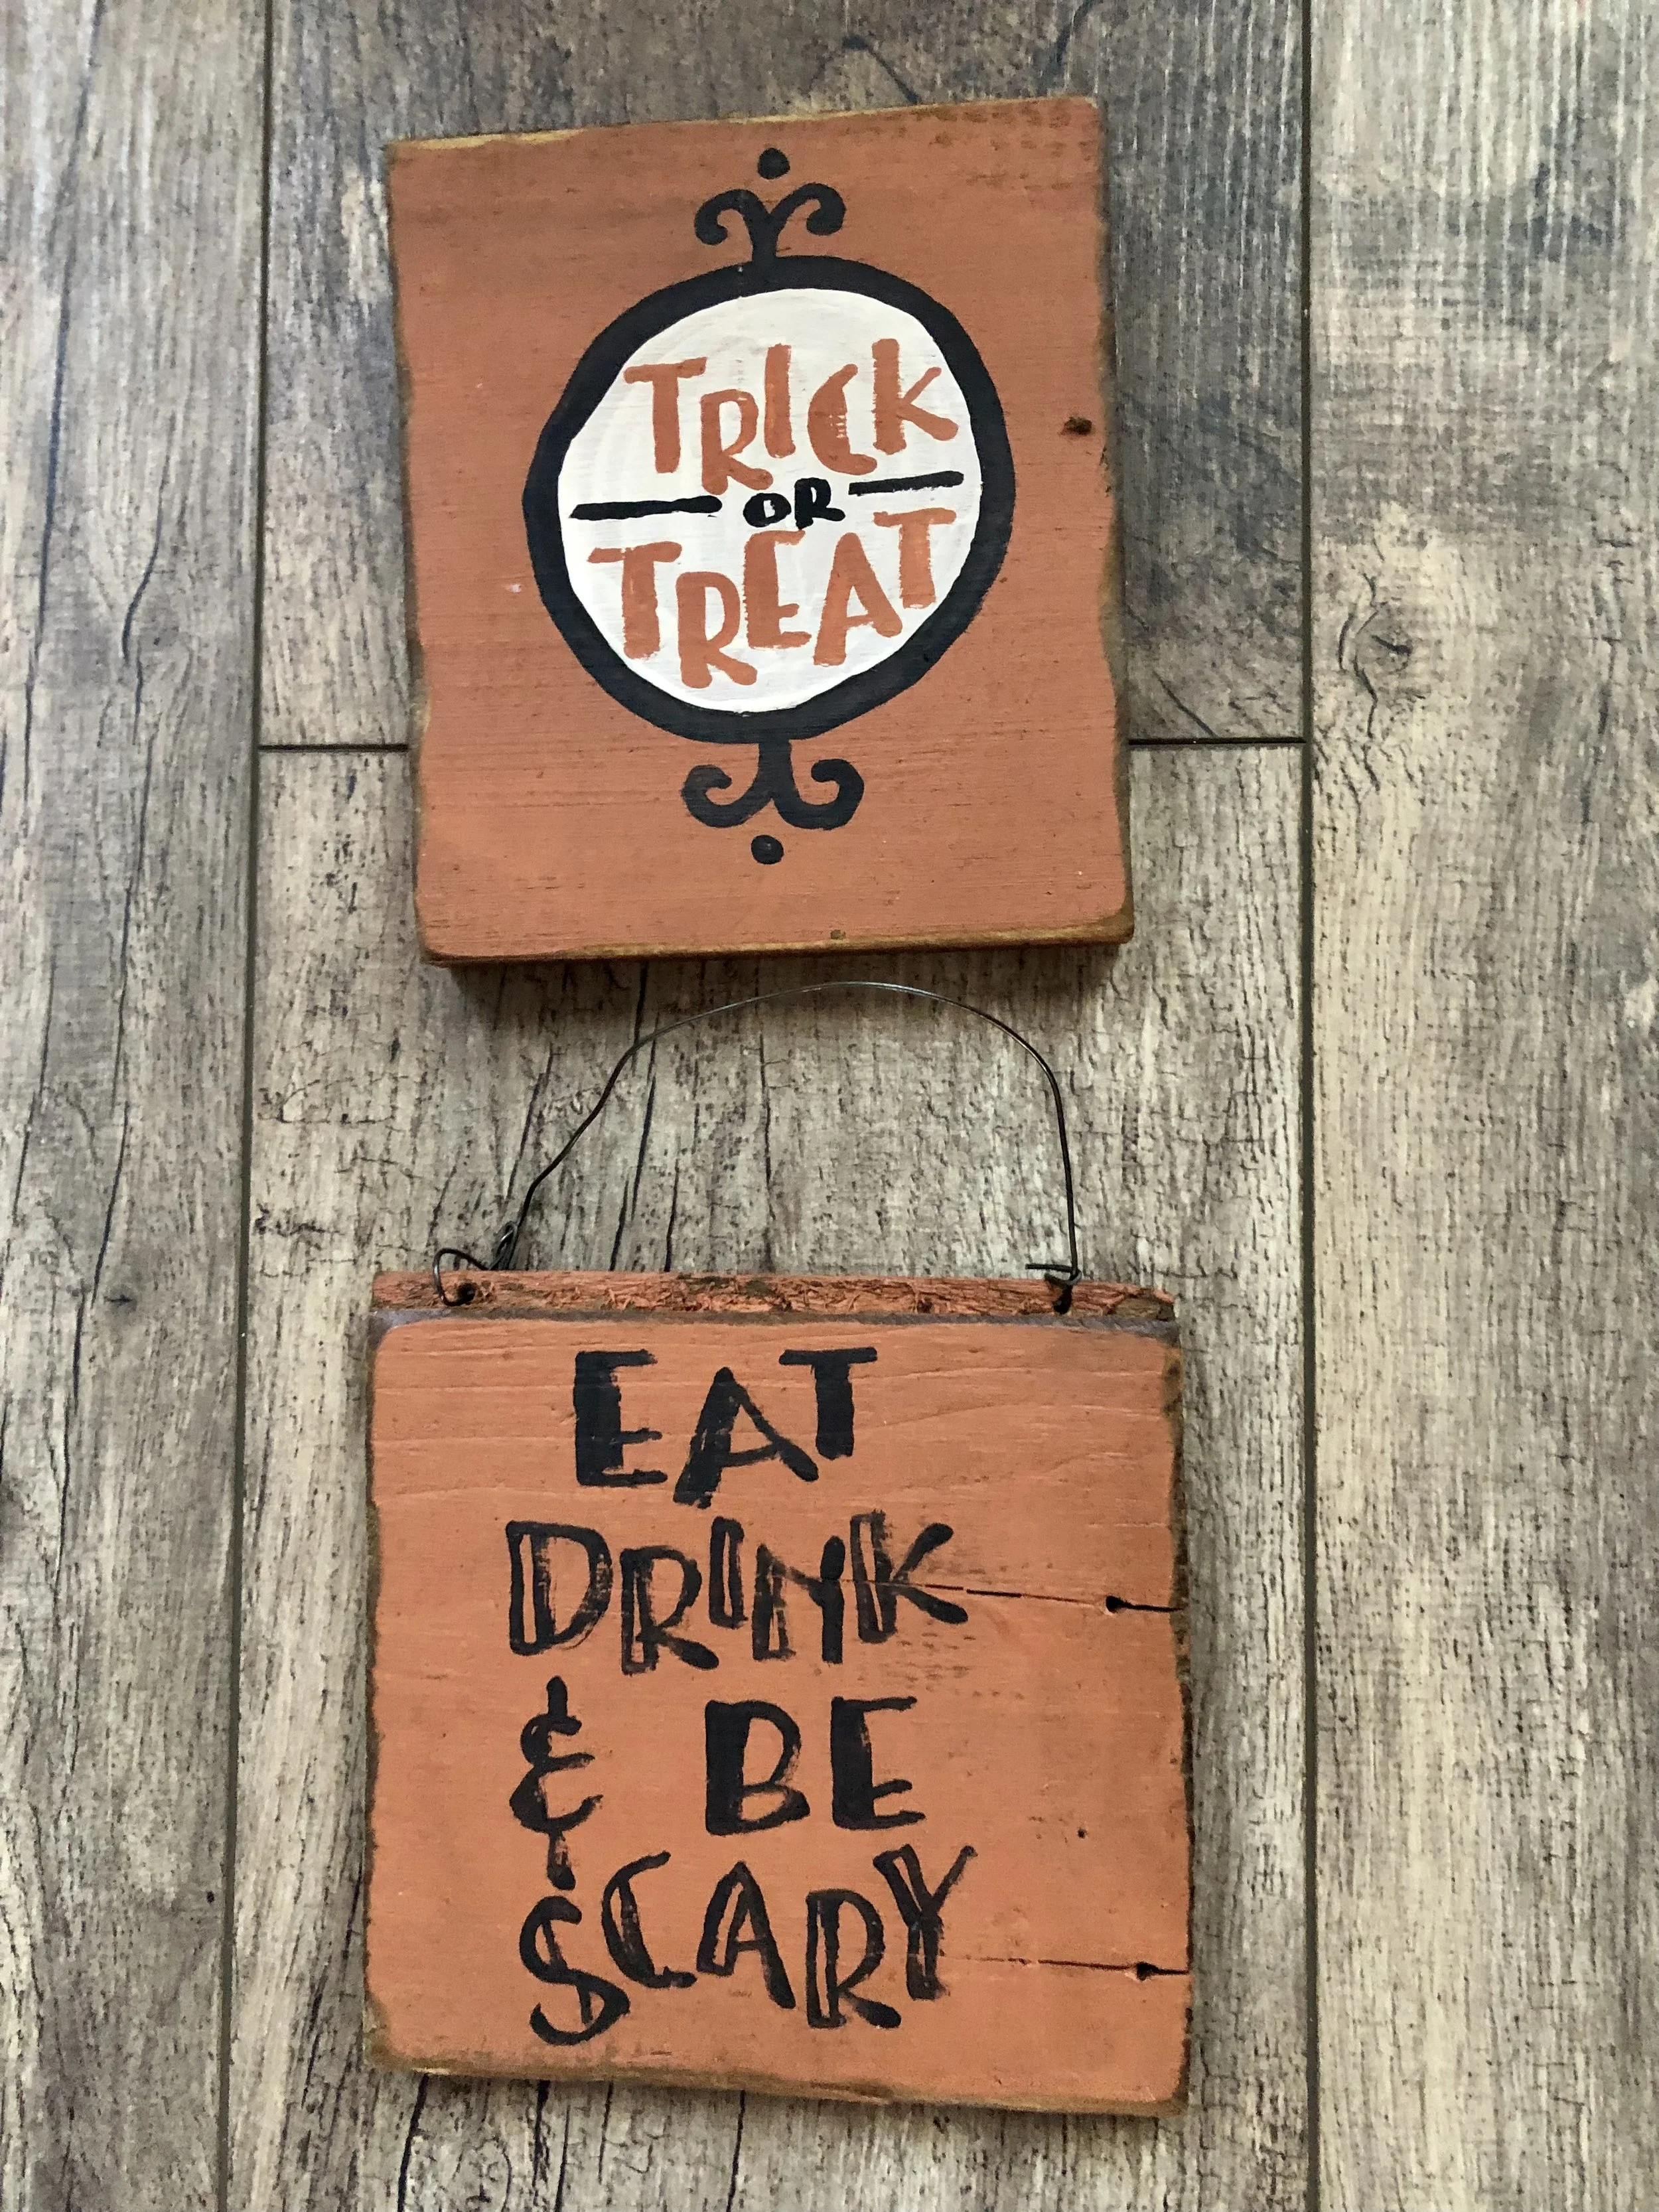 TRICK
OR
TREAT
EAT
DRINK
& BE
SCARY